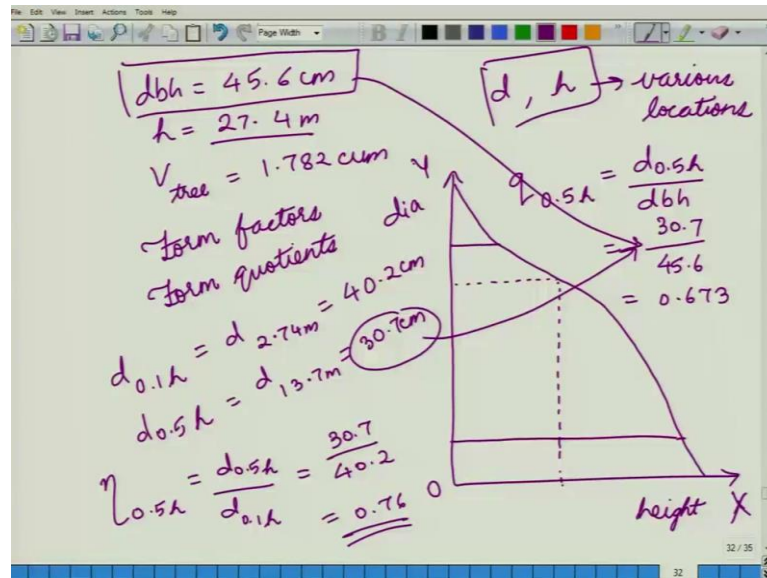 File Edit View Insert Actions Tools Help
Page Width
B I
dbh = 45.6 cm
h = 27.4 m
V tree = 1.782 cum
Form factors
Form quotients
d0.1h = d2.74m = 40.2cm
d0.5h = d13.7m = 30.7cm
η0.5h = d0.5h / d0.1h = 30.7 / 40.2
= 0.76
d, h → various
locations
q0.5h = d0.5h / dbh
= 30.7 / 45.6
= 0.673
Y
dia
O
height X
32 / 35
32